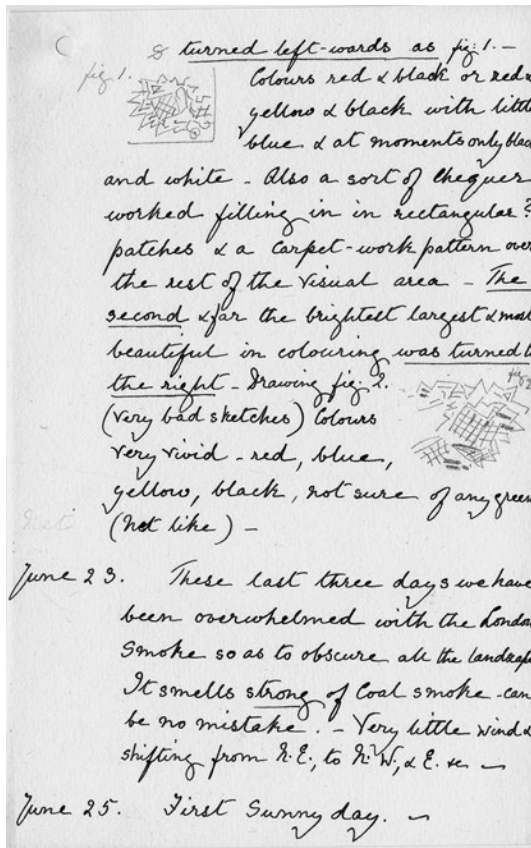 & turned left-wards as fig: 1. –
fig 1.
Colours red & black or red &
yellow & black with little
blue & at moments only blac
and white – Also a sort of chequer
worked filling in in rectangular?
patches & a carpet-work pattern over
the rest of the visual area – The
second & far the brightest largest & most
beautiful in colouring was turned t
the right – Drawing fig: 2.
fig
(very bad sketches) Colours
very vivid – red, blue,
yellow, black, not sure of any green
(Not like) –
June 23. These last three days we have
been overwhelmed with the London
Smoke so as to obscure all the landscape
It smells strong of Coal smoke – can
be no mistake. – Very little wind &
shifting from N.E., to N.W, & E. &c –
June 25. First Sunny day. –